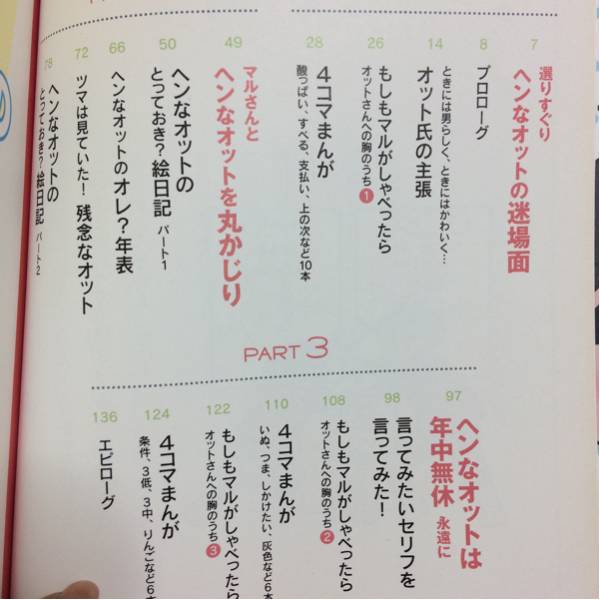 7
選りすぐり
ヘンなオットの迷場面
8
プロローグ
14
ときには男らしく、ときにはかわいく…
オット氏の主張
26
もしもマルがしゃべったら
オットさんへの胸のうち❶
28
4コマまんが
酸っぱい、すべる、支払い、上の次など10本
49
マルさんと
ヘンなオットを丸かじり
50
ヘンなオットの
とっておき?絵日記 パート1
66
ヘンなオットのオレ?年表
72
ツマは見ていた!残念なオット
78
ヘンなオットの
とっておき?絵日記 パート2
PART 3
97
ヘンなオットは
年中無休 永遠に
98
言ってみたいセリフを
言ってみた!
108
もしもマルがしゃべったら
オットさんへの胸のうち❷
110
4コマまんが
いぬ、つま、しかけたい、灰色など6本
122
もしもマルがしゃべったら
オットさんへの胸のうち❸
124
4コマまんが
条件、3低、3中、りんごなど6本
136
エピローグ